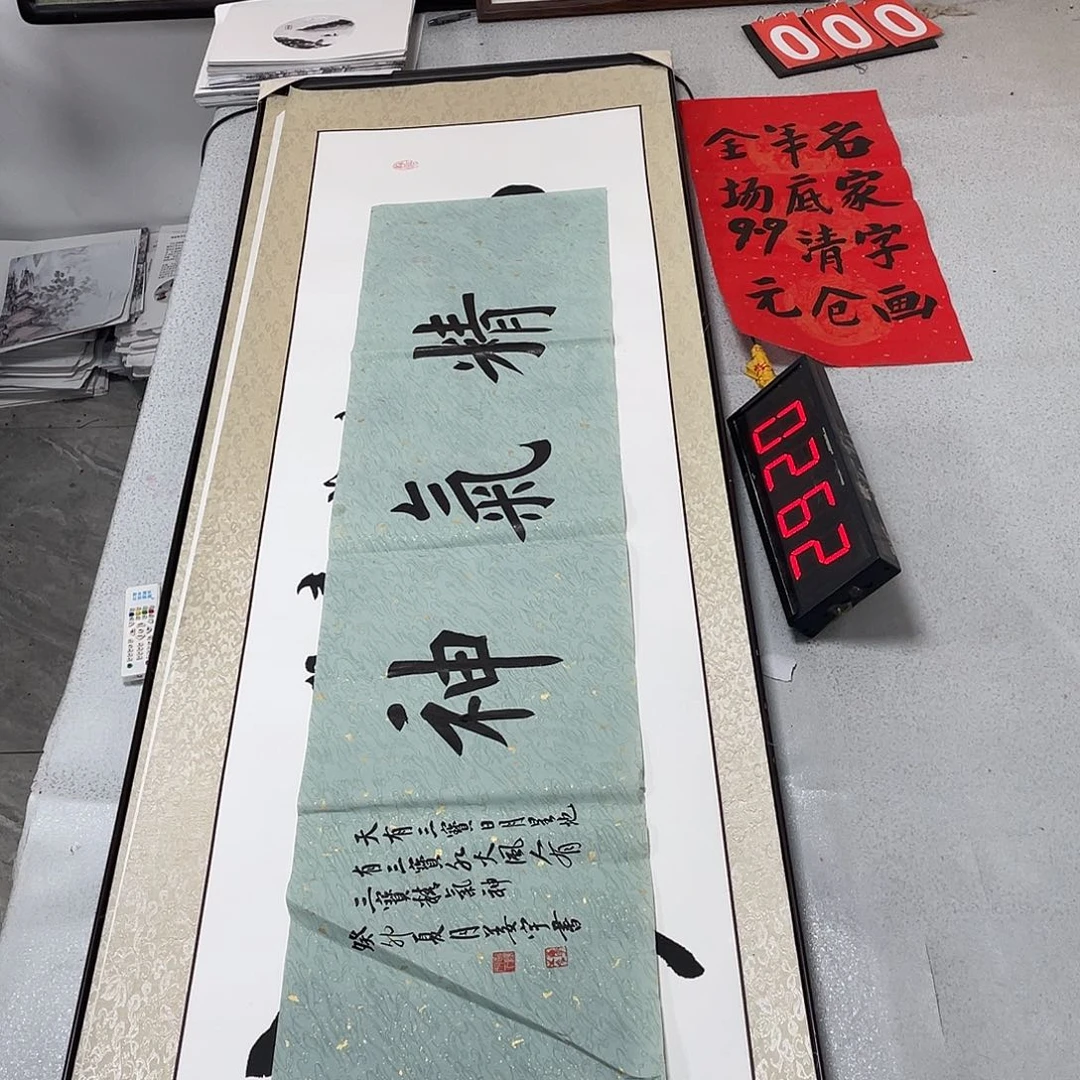 000
名家字画
年底清仓
全场9.9元
0262
精氣神
天有三寶日月星地
有三寶水火風人有
三寶精氣神
癸卯夏月姜宇書